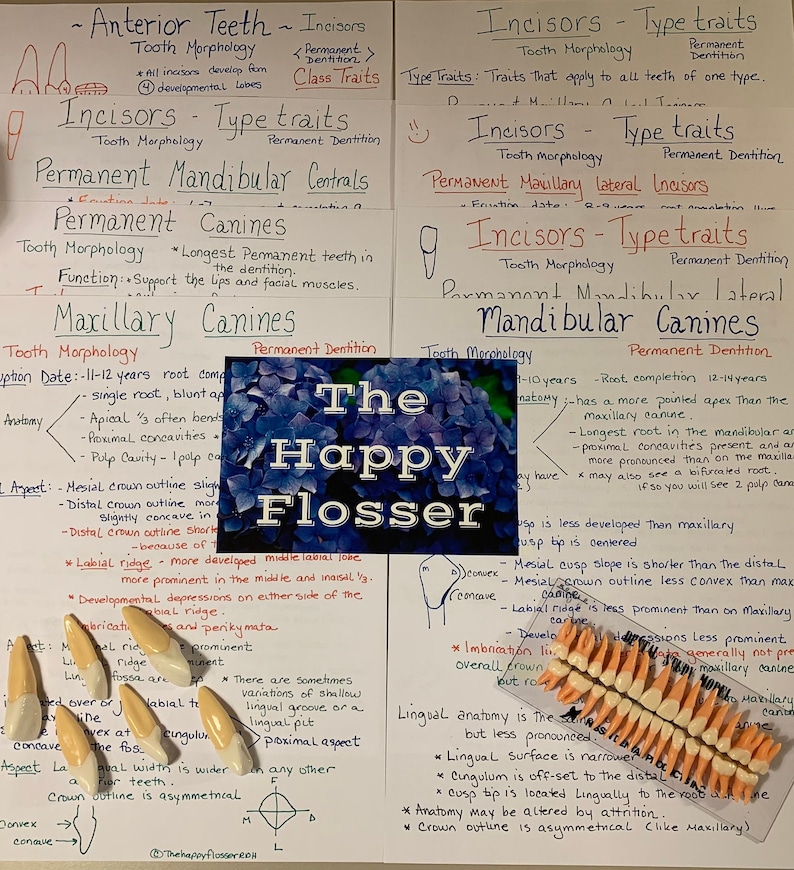 ~ Anterior Teeth ~ Incisors
Tooth Morphology
< Permanent Dentition >
* All incisors develop from
④ developmental lobes
Class Traits
Incisors - Type traits
Tooth Morphology
Permanent Dentition
Type Traits: Traits that apply to all teeth of one type.
Incisors - Type traits
Tooth Morphology
Permanent Dentition
Permanent Mandibular Centrals
* Eruption date:
Incisors - Type traits
Tooth Morphology
Permanent Dentition
Permanent Maxillary lateral Incisors
* Eruption date: 8-9 years
Permanent Canines
Tooth Morphology
* Longest Permanent teeth in
the dentition.
Function: * Support the lips and facial muscles.
Incisors - Type traits
Tooth Morphology
Permanent Dentition
Permanent Mandibular Lateral
Maxillary Canines
Tooth Morphology
Permanent Dentition
Date: -11-12 years root
Anatomy
- single root, blunt
- Apical 1/3 often bends
- Proximal concavities *
- Pulp Cavity - 1 pulp
Aspect: - Mesial crown outline
- Distal crown outline more
slightly concave in
- Distal crown outline
- because of
* Labial ridge - more developed middle labial lobe
more prominent in the middle and incisal 1/3.
* Developmental depressions on either side of the
ridge.
and perikymata
ridge
prominent
fossa are
* There are sometimes
variations of shallow
lingual groove or a
lingual pit
over or
at
concave
the
proximal aspect
Aspect
width is wider
any other
teeth.
Crown outline is asymmetrical
Convex
concave
F
M
D
L
© ThehappyflosserRDH
Mandibular Canines
Tooth Morphology
Permanent Dentition
-10 years - Root completion 12-14 years
- has a more pointed apex than the
maxillary canine.
- Longest root in the mandibular
- proximal concavities present and
more pronounced than on the
* may also see a bifurcated root.
if so you will see 2 pulp
may have
is less developed than maxillary
tip is centered
- Mesial cusp slope is shorter than the distal
- Mesial crown outline less convex than
canine
M
D
convex
concave
- Labial ridge is less prominent than on Maxillary
canine
less prominent
* Imbrication
generally not
overall crown
maxillary canine
but
Maxillary
Lingual anatomy is the
but less pronounced
* Lingual surface is narrower
* Cingulum is off-set to the distal
* cusp tip is located Lingually to the root
* Anatomy may be altered by attrition.
* Crown outline is asymmetrical (like Maxillary)
The
Happy
Flosser
DENTAL STUDY MODEL